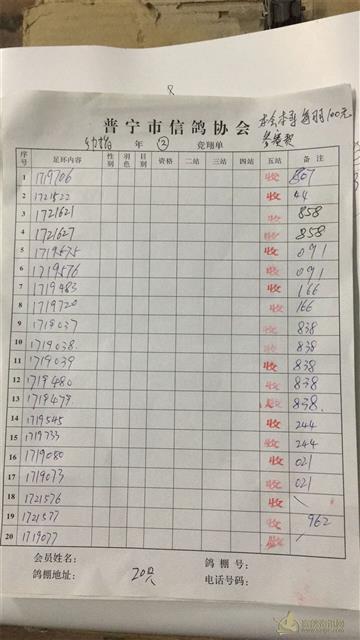 普宁市信鸽协会
每羽100元
年 ② 竞翔单
序号 足环内容 性别 羽色 目别 资格 二站 三站 四站 五站 备注
1 1719706 收 867
2 1721522 收 44
3 1721621 收 858
4 1721627 收 858
5 1719575 收 091
6 1719576 收 091
7 1719483 收 166
8 1719720 收 166
9 1719037 收 838
10 1719038 收 838
11 1719039 收 838
12 1719480 收 838
13 1719479 收 838
14 1719545 收 244
15 1719733 收 244
16 1719080 收 021
17 1719073 收 021
18 1721576 收
19 1721577 收 962
20 1719077 收
会员姓名: 鸽棚号:
鸽棚地址: 20只 电话号码: